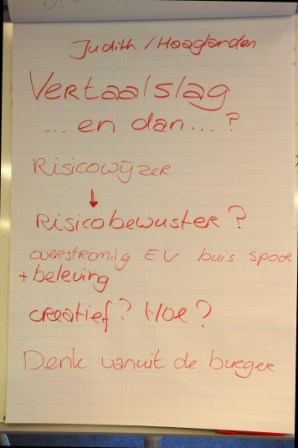 Judith / Haaglanden
Vertaalslag
... en dan ... ?
Risicowijzer
Risicobewuster ?
overstroming EV buis spoor
+ beleving
creatief? Hoe?
Denk vanuit de burger